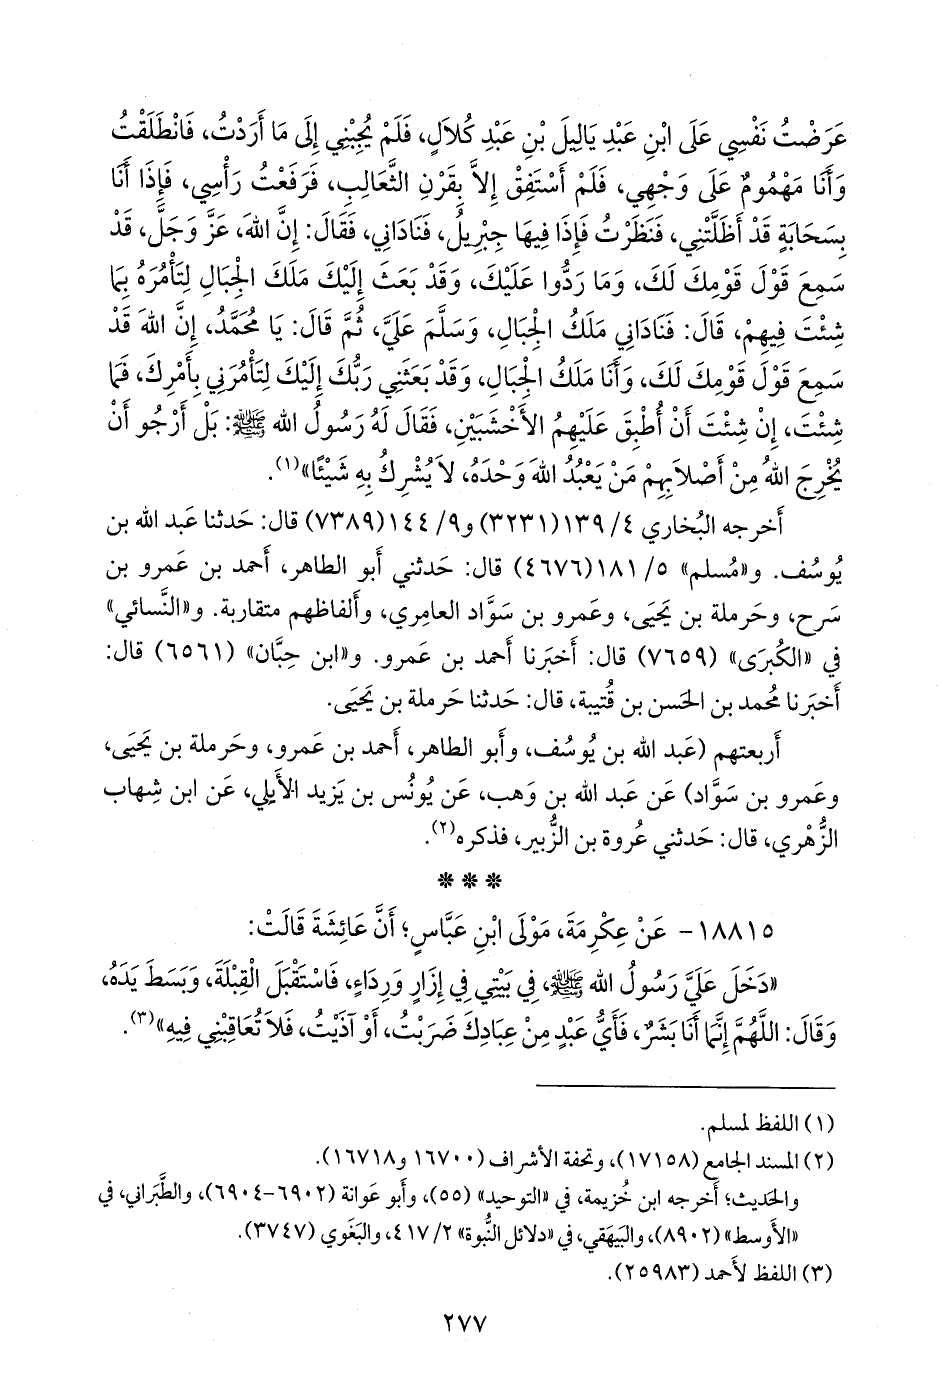 عَرَضْتُ نَفْسِي عَلَى ابْنِ عَبْدِ يَالِيلَ بْنِ عَبْدِ كُلاَلٍ، فَلَمْ يُجِبْنِي إِلَى مَا أَرَدْتُ، فَانْطَلَقْتُ
وَأَنَا مَهْمُومٌ عَلَى وَجْهِي، فَلَمْ أَسْتَفِقْ إِلاَّ بِقَرْنِ الثَّعَالِبِ، فَرَفَعْتُ رَأْسِي، فَإِذَا أَنَا
بِسَحَابَةٍ قَدْ أَظَلَّتْنِي، فَنَظَرْتُ فَإِذَا فِيهَا جِبْرِيلُ، فَنَادَانِي، فَقَالَ: إِنَّ اللهَ، عَزَّ وَجَلَّ، قَدْ
سَمِعَ قَوْلَ قَوْمِكَ لَكَ، وَمَا رَدُّوا عَلَيْكَ، وَقَدْ بَعَثَ إِلَيْكَ مَلَكَ الْجِبَالِ لِتَأْمُرَهُ بِمَا
شِئْتَ فِيهِمْ، قَالَ: فَنَادَانِي مَلَكُ الْجِبَالِ، وَسَلَّمَ عَلَيَّ، ثُمَّ قَالَ: يَا مُحَمَّدُ، إِنَّ اللهَ قَدْ
سَمِعَ قَوْلَ قَوْمِكَ لَكَ، وَأَنَا مَلَكُ الْجِبَالِ، وَقَدْ بَعَثَنِي رَبُّكَ إِلَيْكَ لِتَأْمُرَنِي بِأَمْرِكَ، فَمَا
شِئْتَ، إِنْ شِئْتَ أَنْ أُطْبِقَ عَلَيْهِمُ الأَخْشَبَيْنِ، فَقَالَ لَهُ رَسُولُ اللهِ ﷺ: بَلْ أَرْجُو أَنْ
يُخْرِجَ اللهُ مِنْ أَصْلاَبِهِمْ مَنْ يَعْبُدُ اللهَ وَحْدَهُ، لاَ يُشْرِكُ بِهِ شَيْئًا»(١).
أَخرجه البُخاري ٤/ ١٣٩(٣٢٣١) و٩/ ١٤٤(٧٣٨٩) قال: حَدثنا عَبد الله بن
يُوسُف. و«مُسلم» ٥/ ١٨١(٤٦٧٦) قال: حَدثني أَبو الطاهر، أَحمد بن عَمرو بن
سَرح، وحَرملة بن يَحيَى، وعَمرو بن سَوَّاد العامري، وأَلفاظهم متقاربة. و«النَّسائي»
في «الكُبرَى» (٧٦٥٩) قال: أَخبَرنا أَحمد بن عَمرو. و«ابن حِبَّان» (٦٥٦١) قال:
أَخبَرنا مُحمد بن الحَسن بن قُتيبة، قال: حَدثنا حَرملة بن يَحيَى.
أَربعتهم (عَبد الله بن يُوسُف، وأَبو الطاهر، أَحمد بن عَمرو، وحَرملة بن يَحيَى،
وعَمرو بن سَوَّاد) عَن عَبد الله بن وَهب، عَن يُونُس بن يَزيد الأَيلي، عَن ابن شِهاب
الزُّهْري، قال: حَدثني عُروة بن الزُّبير، فذكره(٢).
* * *
١٨٨١٥- عَنْ عِكْرِمَةَ، مَوْلَى ابْنِ عَبَّاسٍ؛ أَنَّ عَائِشَةَ قَالَتْ:
«دَخَلَ عَلَيَّ رَسُولُ اللهِ ﷺ، فِي بَيْتِي فِي إِزَارٍ وَرِدَاءٍ، فَاسْتَقْبَلَ الْقِبْلَةَ، وَبَسَطَ يَدَهُ،
وَقَالَ: اللَّهُمَّ إِنَّمَا أَنَا بَشَرٌ، فَأَيُّ عَبْدٍ مِنْ عِبَادِكَ ضَرَبْتُ، أَوْ آذَيْتُ، فَلاَ تُعَاقِبْنِي فِيهِ»(٣).
(١) اللفظ لمسلم.
(٢) المسند الجامع (١٧١٥٨)، وتحفة الأشراف (١٦٧٠٠ و١٦٧١٨).
والحَديث؛ أَخرجه ابن خُزيمة، في «التوحيد» (٥٥)، وأَبو عَوانة (٦٩٠٢-٦٩٠٤)، والطَّبَراني، في
«الأَوسط» (٨٩٠٢)، والبَيهَقي، في «دلائل النُّبوة» ٢/ ٤١٧، والبَغَوي (٣٧٤٧).
(٣) اللفظ لأحمد (٢٥٩٨٣).
٢٧٧